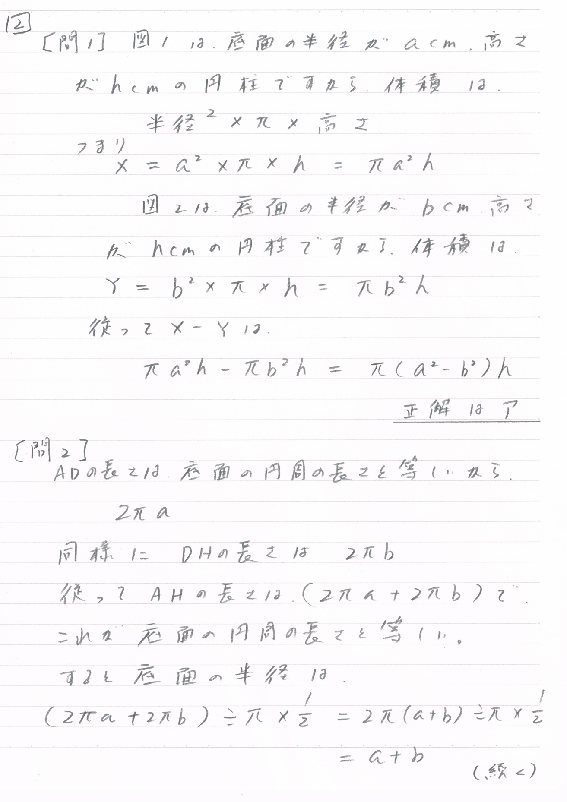 2
[問1] 図1は、底面の半径がacm、高さ
がhcmの円柱ですから、体積は、
半径²×π×高さ
つまり
X = a²×π×h = πa²h
図2は、底面の半径がbcm、高さ
がhcmの円柱ですから、体積は、
Y = b²×π×h = πb²h
従ってX-Yは、
πa²h - πb²h = π(a²-b²)h
正解はア
[問2]
ADの長さは、底面の円周の長さと等しいから、
2πa
同様に DHの長さは 2πb
従って AHの長さは、(2πa+2πb)で、
これが底面の円周の長さと等しい。
すると底面の半径は、
(2πa+2πb)÷π×1/2 = 2π(a+b)÷π×1/2
= a+b
(続く)